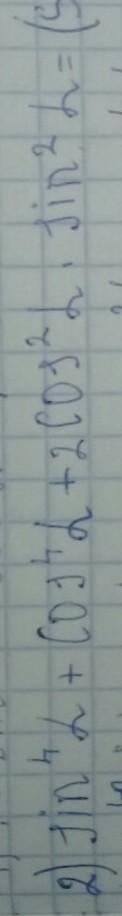 2) sin⁴α + cos⁴α + 2cos²α · sin²α = (s